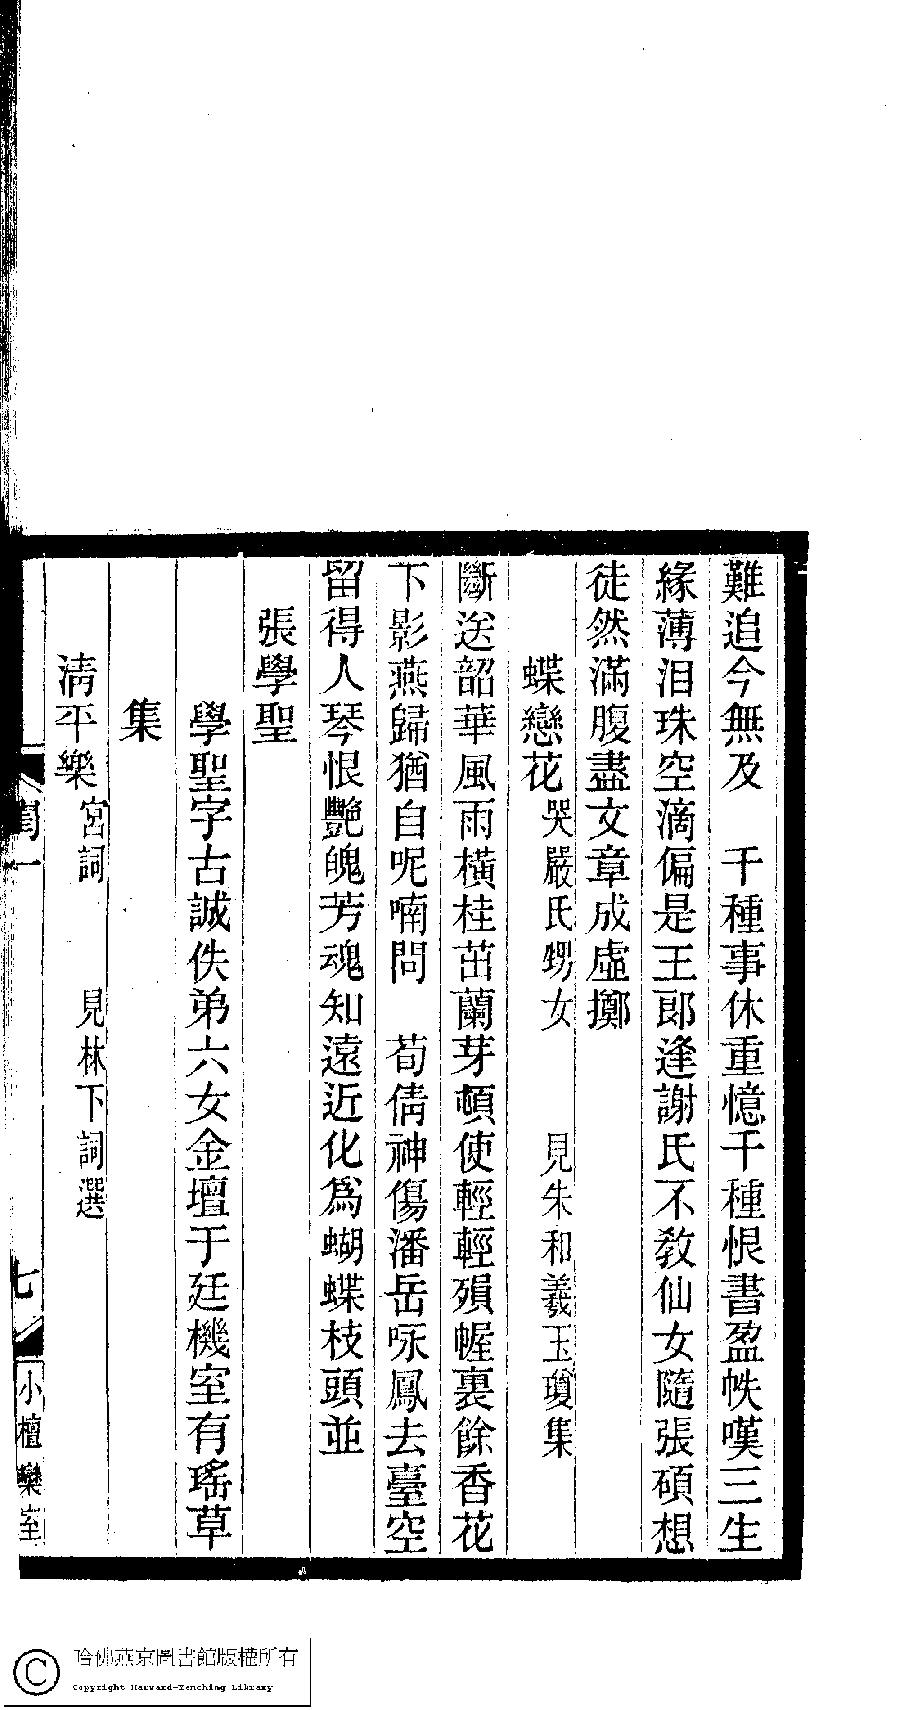 難追今無及　千種事休重憶千種恨書盈帙嘆三生
緣薄泪珠空滴偏是王郎逢謝氏不敎仙女隨張碩想
徒然滿腹盡文章成虛擲
蝶戀花哭嚴氏甥女　見朱和羲玉瓊集
斷送韶華風雨橫桂茁蘭芽頓使輕輕殞幄裏餘香花
下影燕歸猶自呢喃問　荀倩神傷潘岳咏鳳去臺空
留得人琴恨艷魄芳魂知遠近化爲蝴蝶枝頭並
張學聖
學聖字古誠佚弟六女金壇于廷機室有瑤草
集
淸平樂宮詞　見林下詞選
閏一
七
小檀欒室
哈佛燕京圖書館版權所有
Copyright Harvard-Yenching Library